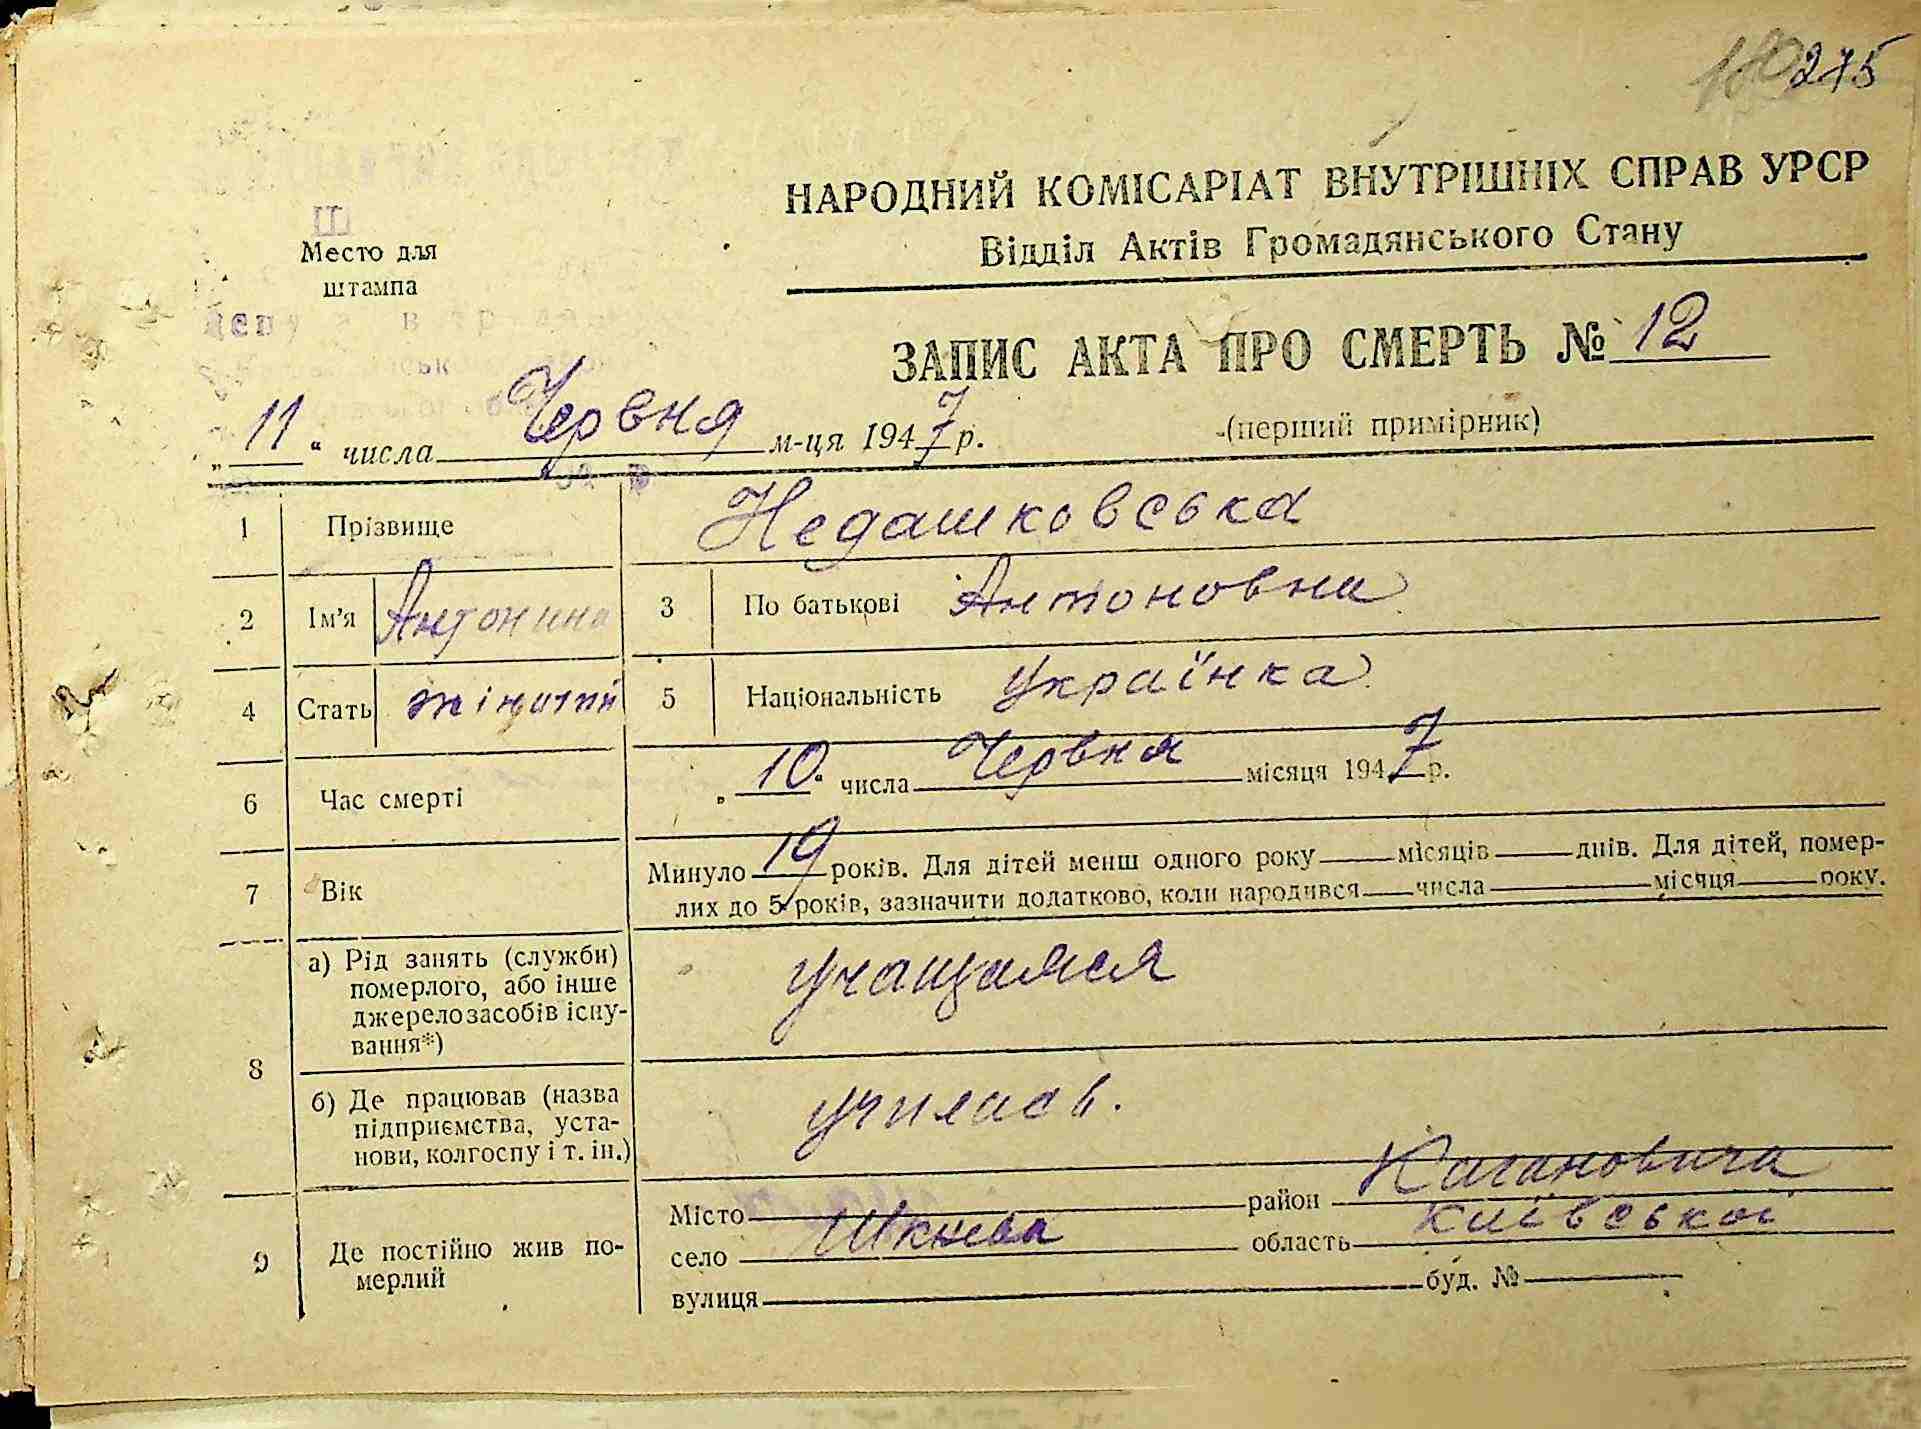 275
НАРОДНИЙ КОМІСАРІАТ ВНУТРІШНІХ СПРАВ УРСР
Відділ Актів Громадянського Стану
Место для
штампа
ЗАПИС АКТА ПРО СМЕРТЬ № 12
„11“ числа Червня м-ця 1947 р.
(перший примірник)
1 Прізвище Недашковська
2 Ім'я Антонина 3 По батькові Антоновна
4 Стать жіночий 5 Національність Українка
6 Час смерті „10“ числа Червня місяця 1947 р.
7 Вік Минуло 19 років. Для дітей менш одного року місяців днів. Для дітей, помер-
лих до 5 років, зазначити додатково, коли народився числа місяця року.
8 а) Рід занять (служби)
померлого, або інше
джерело засобів існу-
вання*)
учащаяся
б) Де працював (назва
підприємства, уста-
нови, колгоспу і т. ін.)
училась.
9 Де постійно жив по-
мерлий
Місто район Кагановича
село Шкнева область Київської
вулиця буд. №